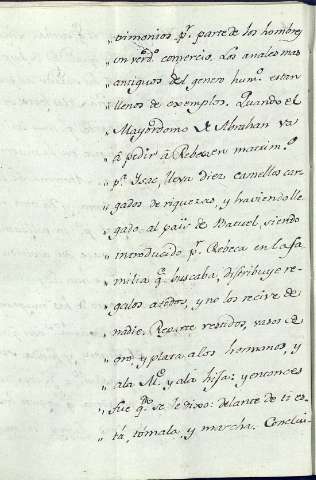 " trimonios pr. parte de los hombres
" un verdo. comercio. Los anales mas
" antiguos del genero humo. estan
" llenos de exemplos. Quando el
" Mayordomo de Abrahan va
" á pedir á Rebeca en matrimo.
" pa. Ysac, lleva diez camellos car
" gados de riquezas, y haviendo lle
" gado al païs de Batuel, siendo
" introducido pr. Rebeca en la fa
" milia q. buscaba, distribuye re
" galos atodos, y no los recive de
" nadie. Reparte vestidos, vasos de
" oro y plata alos hermanos, y
" ala Me. y ala hija: y entonces
" fue qdo. se le dixo: delante de ti es
" tá, tómala, y marcha. Conclui-